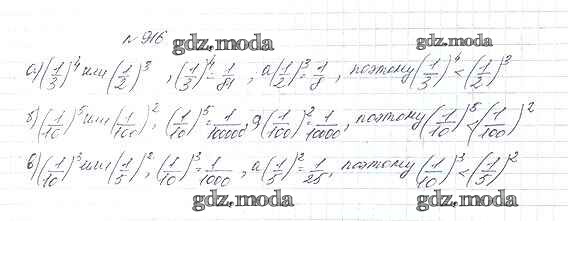 № 916
gdz.moda
gdz.moda
а) (1/3)^4 или (1/2)^3, (1/3)^4 = 1/81, а (1/2)^3 = 1/8, поэтому (1/3)^4 < (1/2)^3
б) (1/10)^5 или (1/100)^2, (1/10)^5 = 1/100000, а (1/100)^2 = 1/10000, поэтому (1/10)^5 < (1/100)^2
в) (1/10)^3 или (1/5)^2, (1/10)^3 = 1/1000, а (1/5)^2 = 1/25, поэтому (1/10)^3 < (1/5)^2
gdz.moda
gdz.moda